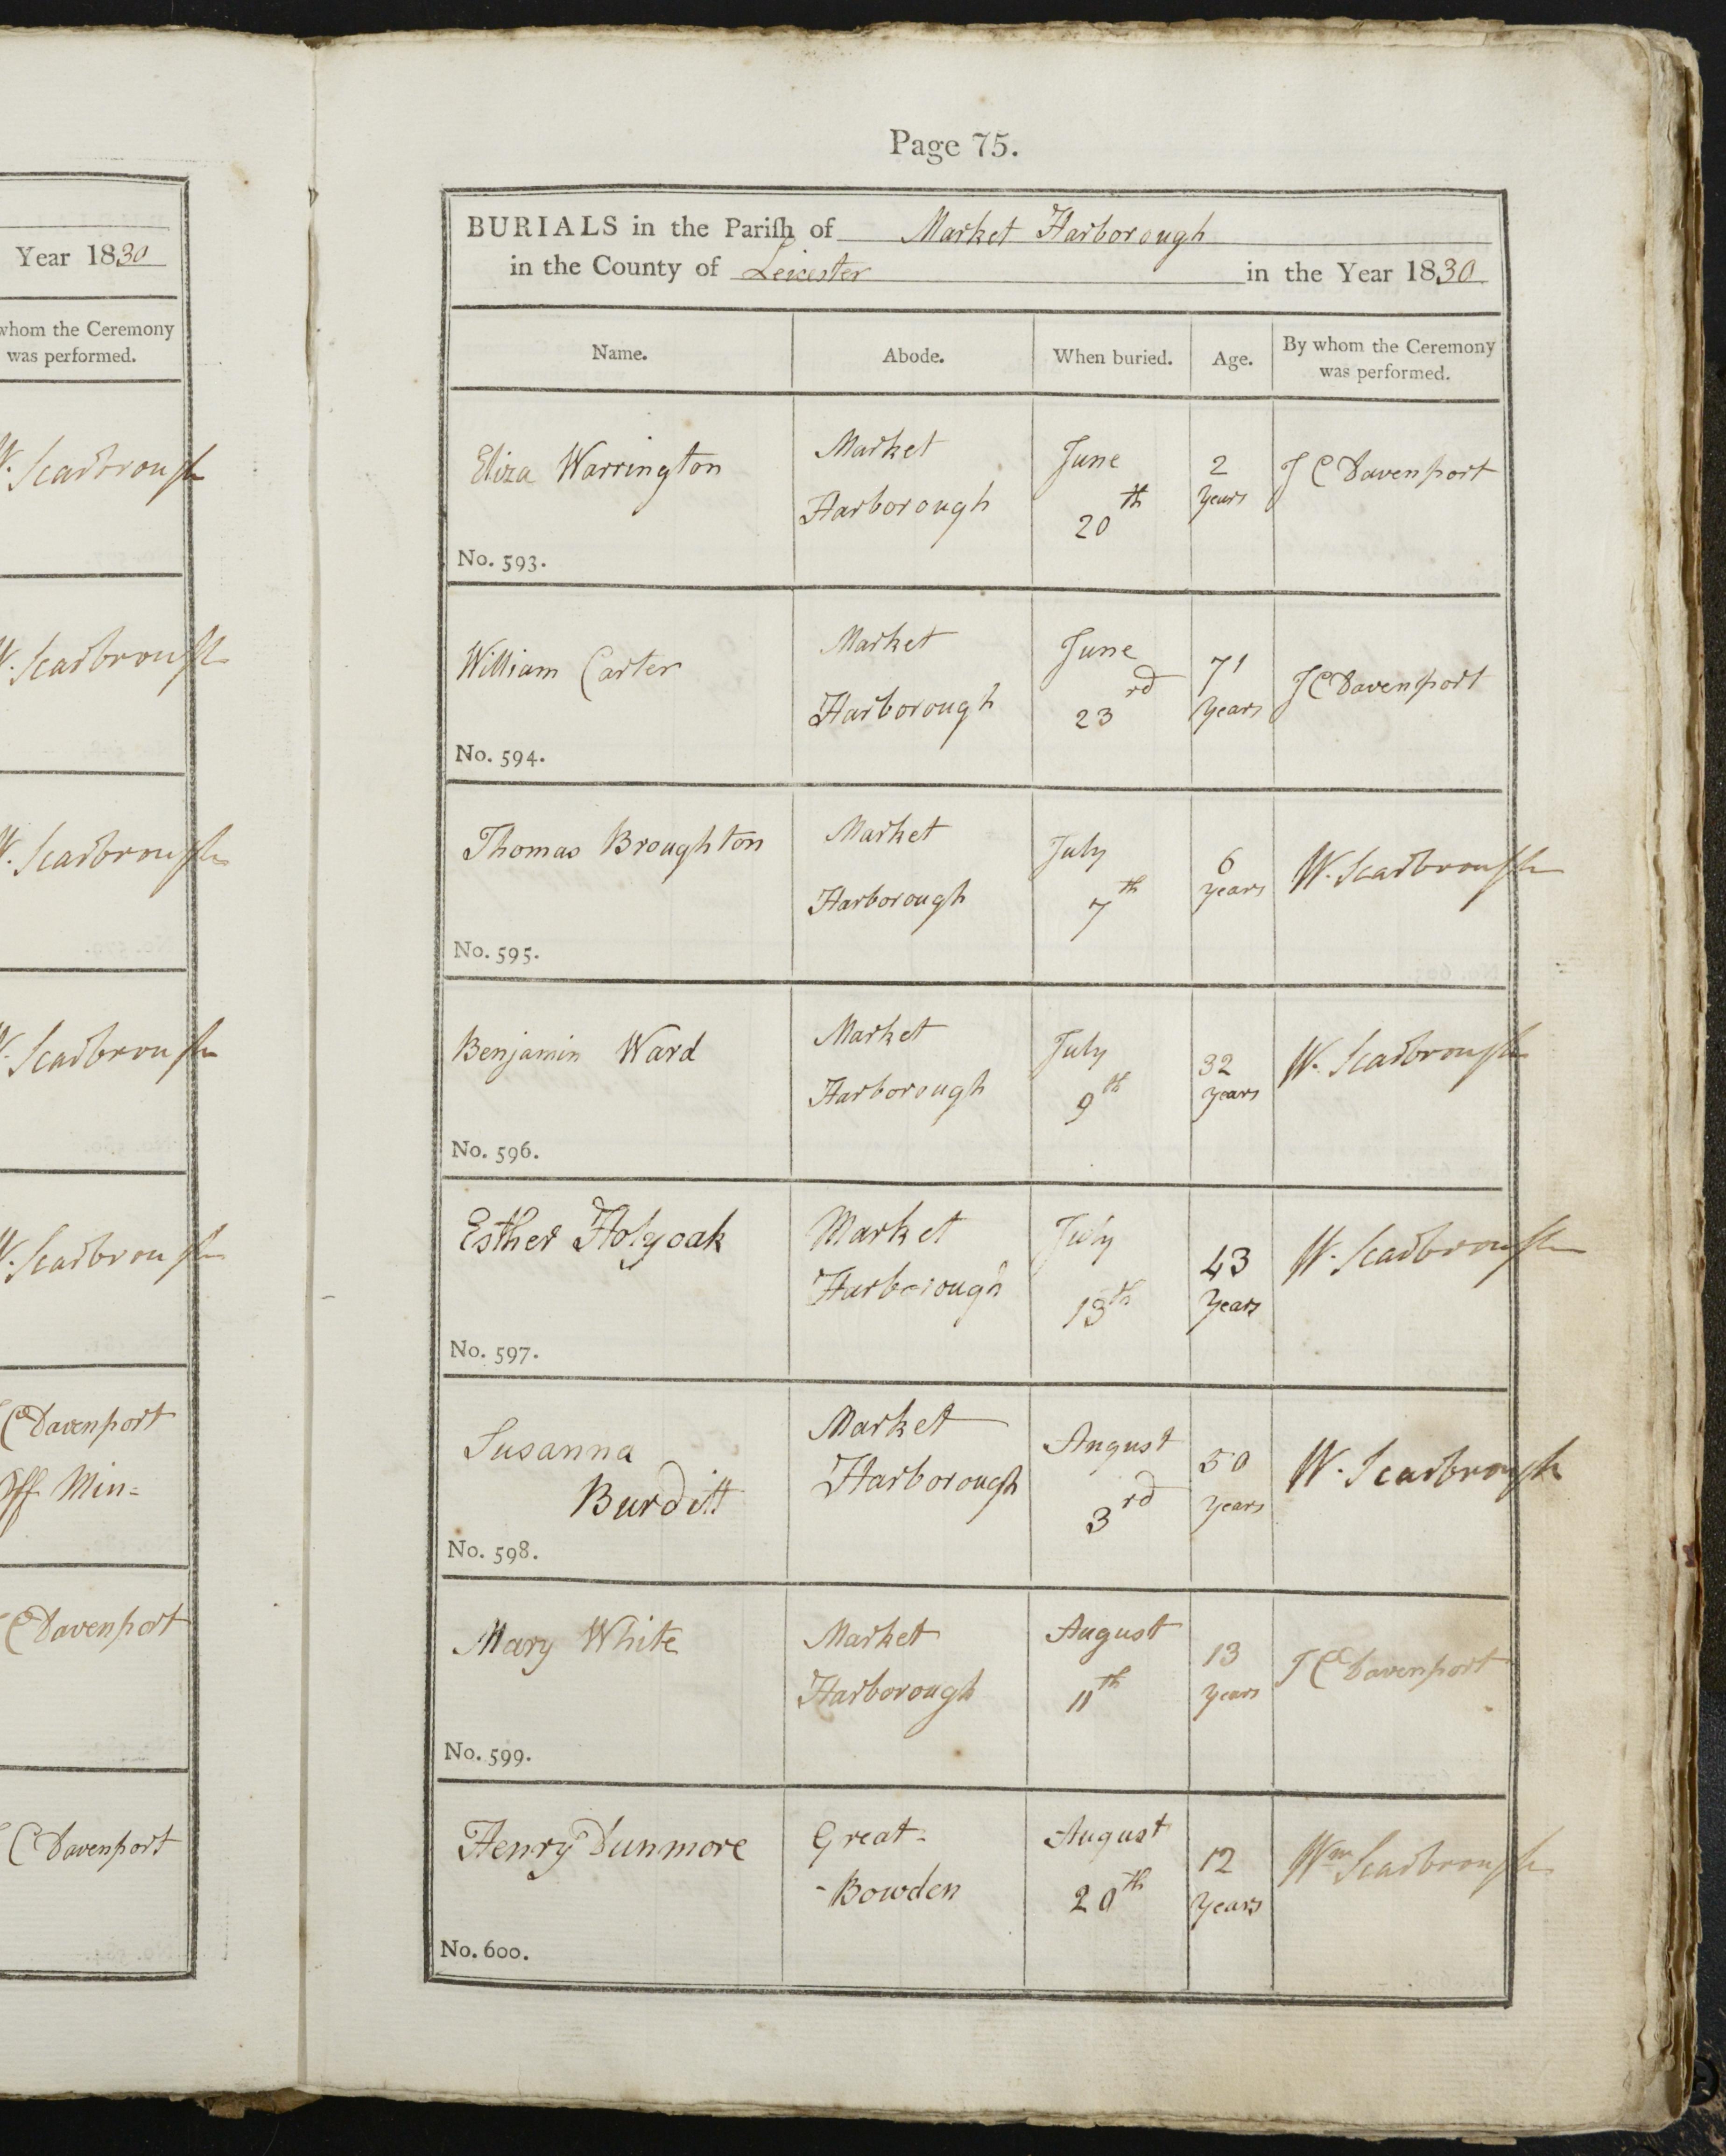 Year 1830
whom the Ceremony
was performed.
W. Scarbrough
W. Scarbrough
W. Scarbrough
W. Scarbrough
W. Scarbrough
C Davenport
Off Min=
C Davenport
C Davenport
Page 75.
BURIALS in the Pariſh of Market Harborough
in the County of Leicester in the Year 1830
Name.
Abode.
When buried.
Age.
By whom the Ceremony
was performed.
Eliza Warrington
No. 593.
Market
Harborough
June
20th
2
years
J C Davenport
William Carter
No. 594.
Market
Harborough
June
23rd
71
years
J C Davenport
Thomas Broughton
No. 595.
Market
Harborough
July
7th
6
years
W. Scarbrough
Benjamin Ward
No. 596.
Market
Harborough
July
9th
32
years
W. Scarbrough
Esther Holyoak
No. 597.
Market
Harborough
July
13th
43
years
W. Scarbrough
Susanna
Burditt
No. 598.
Market
Harborough
August
3rd
50
years
W. Scarbrough
Mary White
No. 599.
Market
Harborough
August
11th
13
years
J C Davenport
Henry Dunmore
No. 600.
Great-
-Bowden
August
20th
12
years
Wm Scarbrough